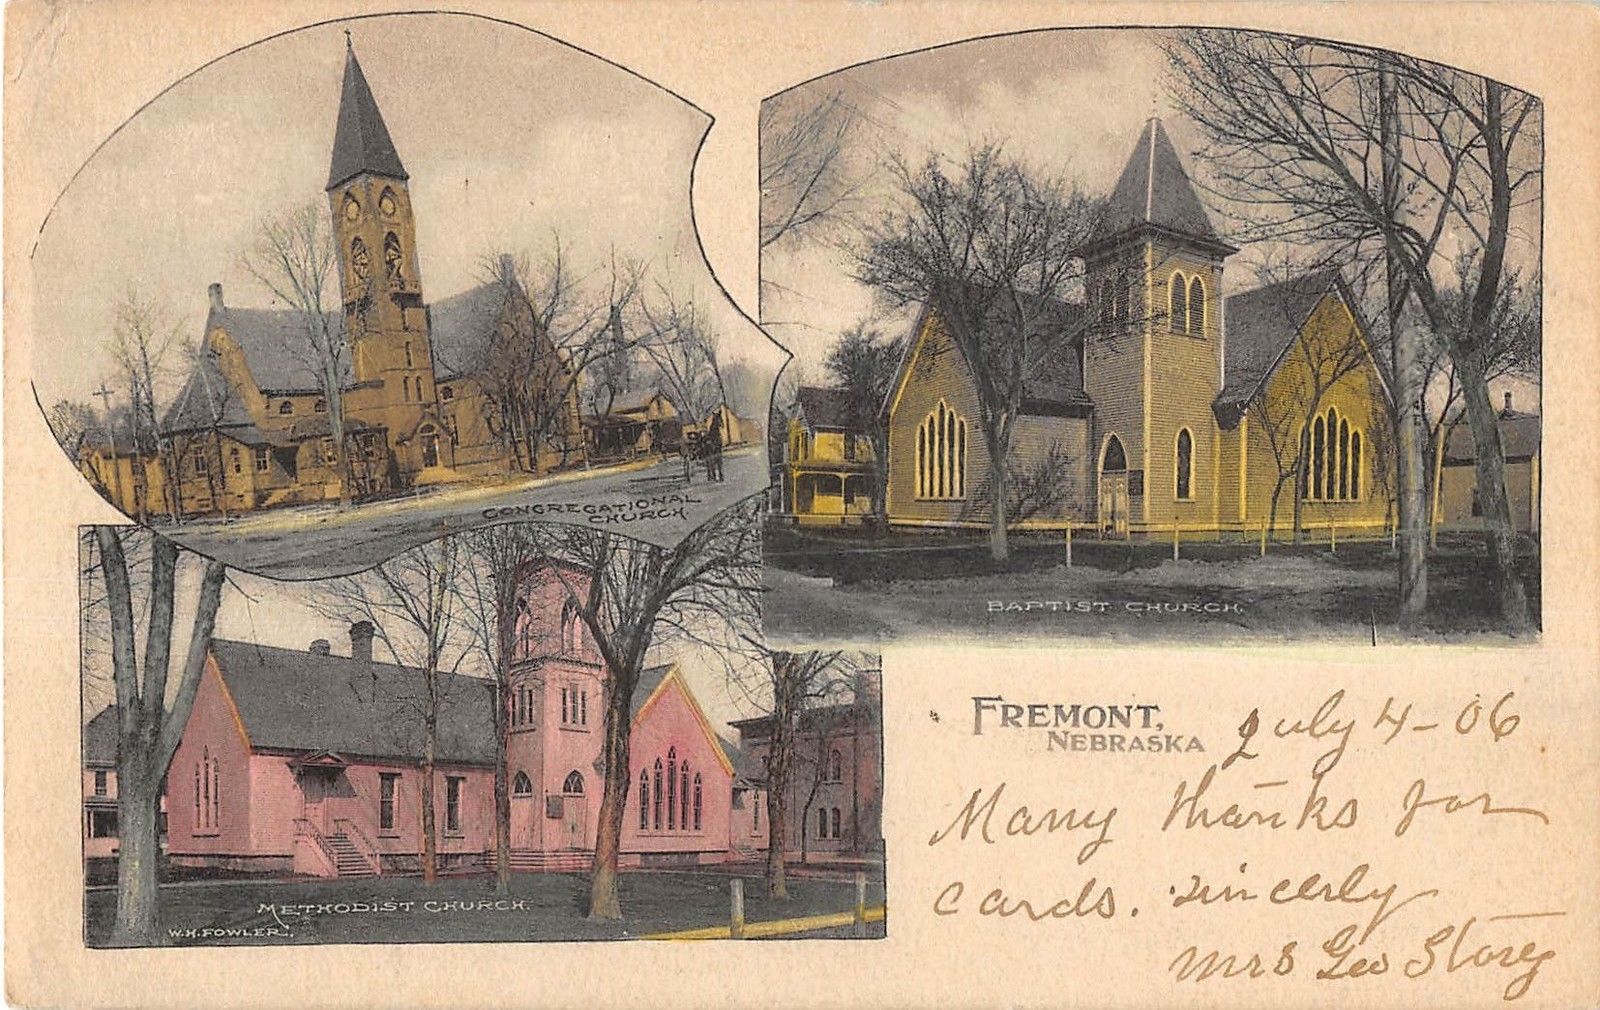 CONGREGATIONAL
CHURCH
BAPTIST CHURCH.
METHODIST CHURCH.
W.H. FOWLER.
FREMONT,
NEBRASKA
July 4-06
Many thanks for
cards. Sincerly
Mrs Geo Storey